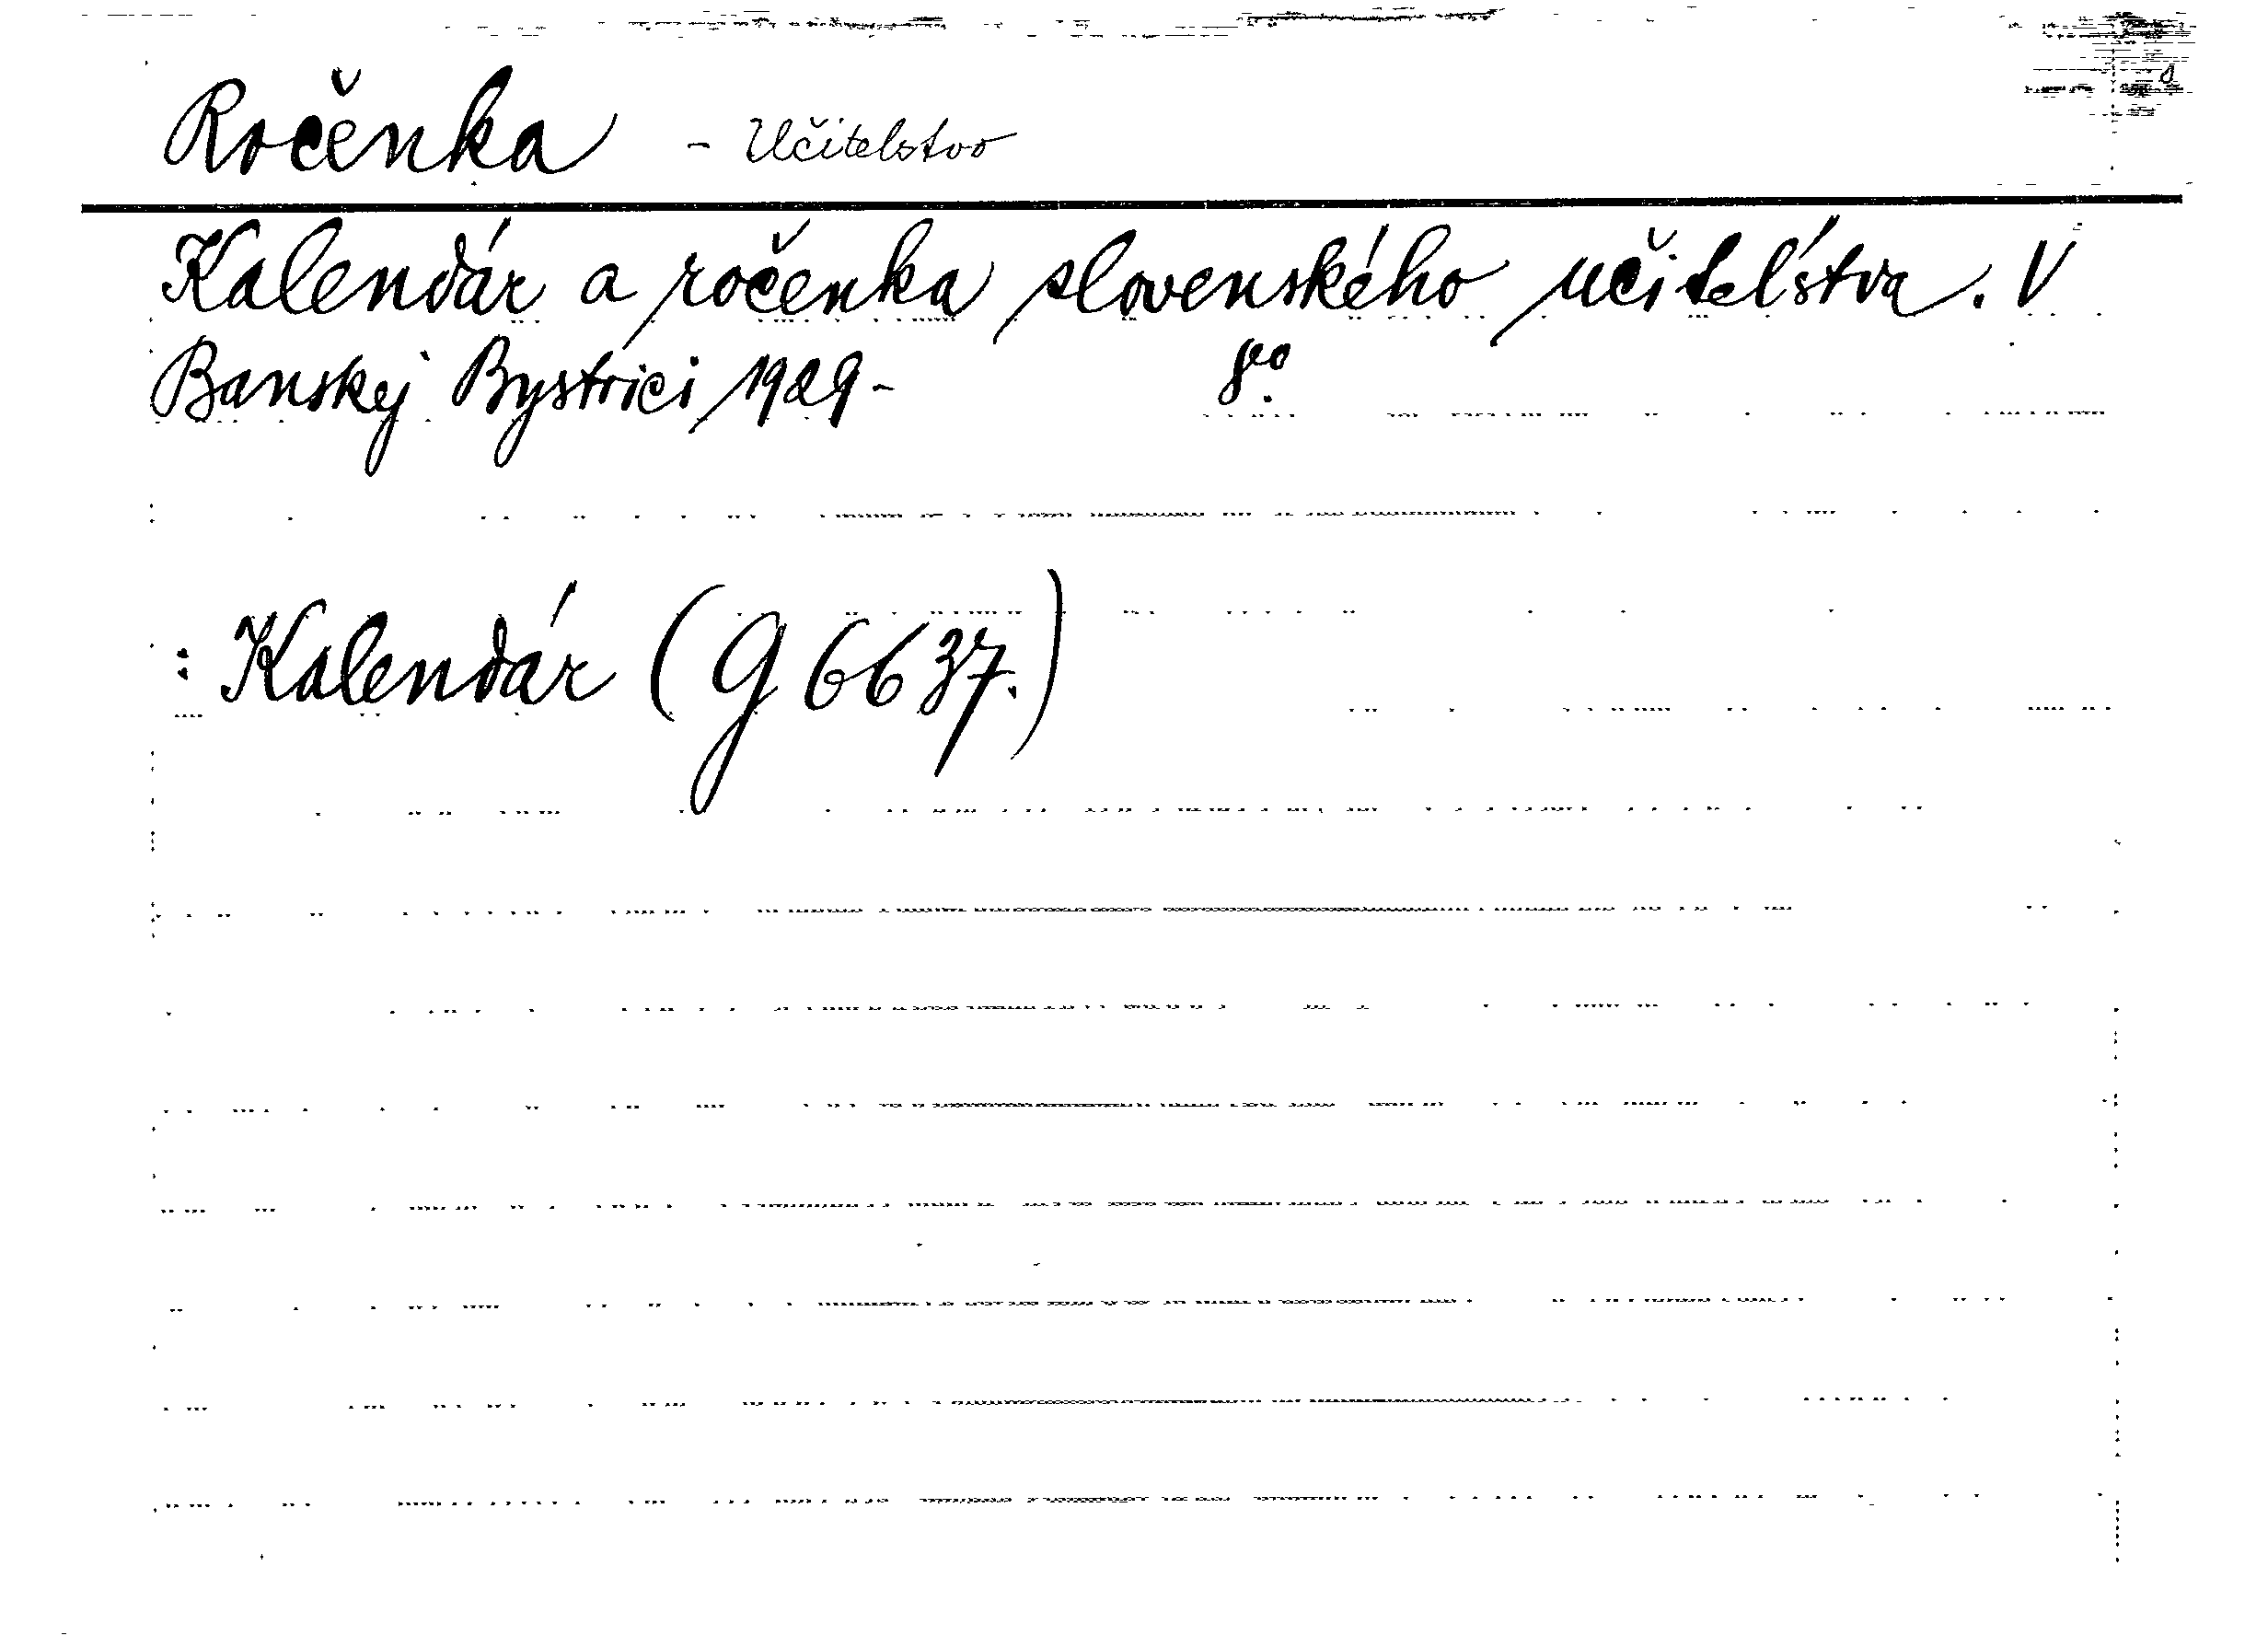 Ročenka - Učitelstvo
Kalendár a ročenka slovenského učiteľstva. V
Banskej Bystrici 1929- 8vo.
: Kalendár (G 6637.)